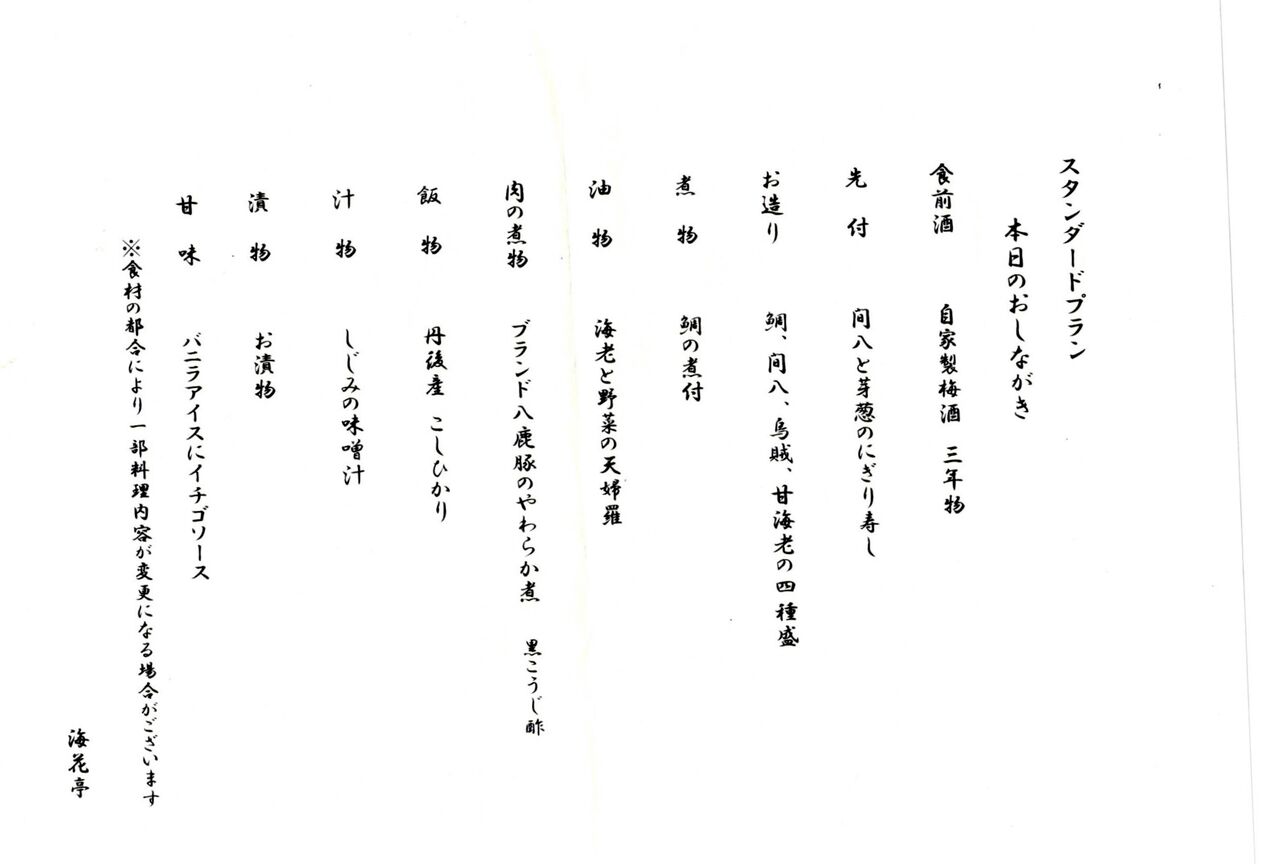 スタンダードプラン
本日のおしながき
食前酒 自家製梅酒 三年物
先付 間八と芽葱のにぎり寿し
お造り 鯛、間八、烏賊、甘海老の四種盛
煮物 鯛の煮付
油物 海老と野菜の天婦羅
肉の煮物 ブランド八鹿豚のやわらか煮 黒こうじ酢
飯物 丹後産 こしひかり
汁物 しじみの味噌汁
漬物 お漬物
甘味 バニラアイスにイチゴソース
※食材の都合により一部料理内容が変更になる場合がございます
海花亭